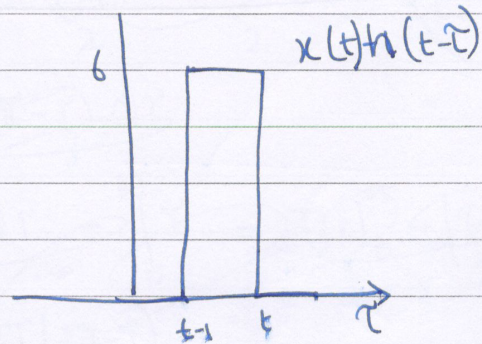 x(t)h(t-τ)
6
t-1 t
τ